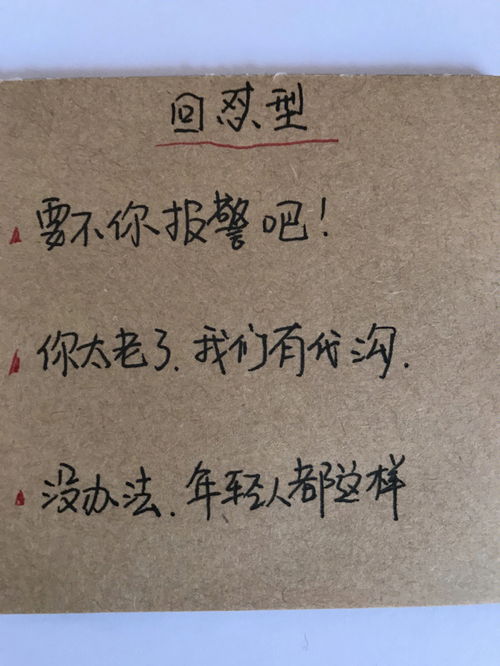 回怼型
要不你报警吧！
你太老了.我们有代沟.
没办法.年轻人都这样